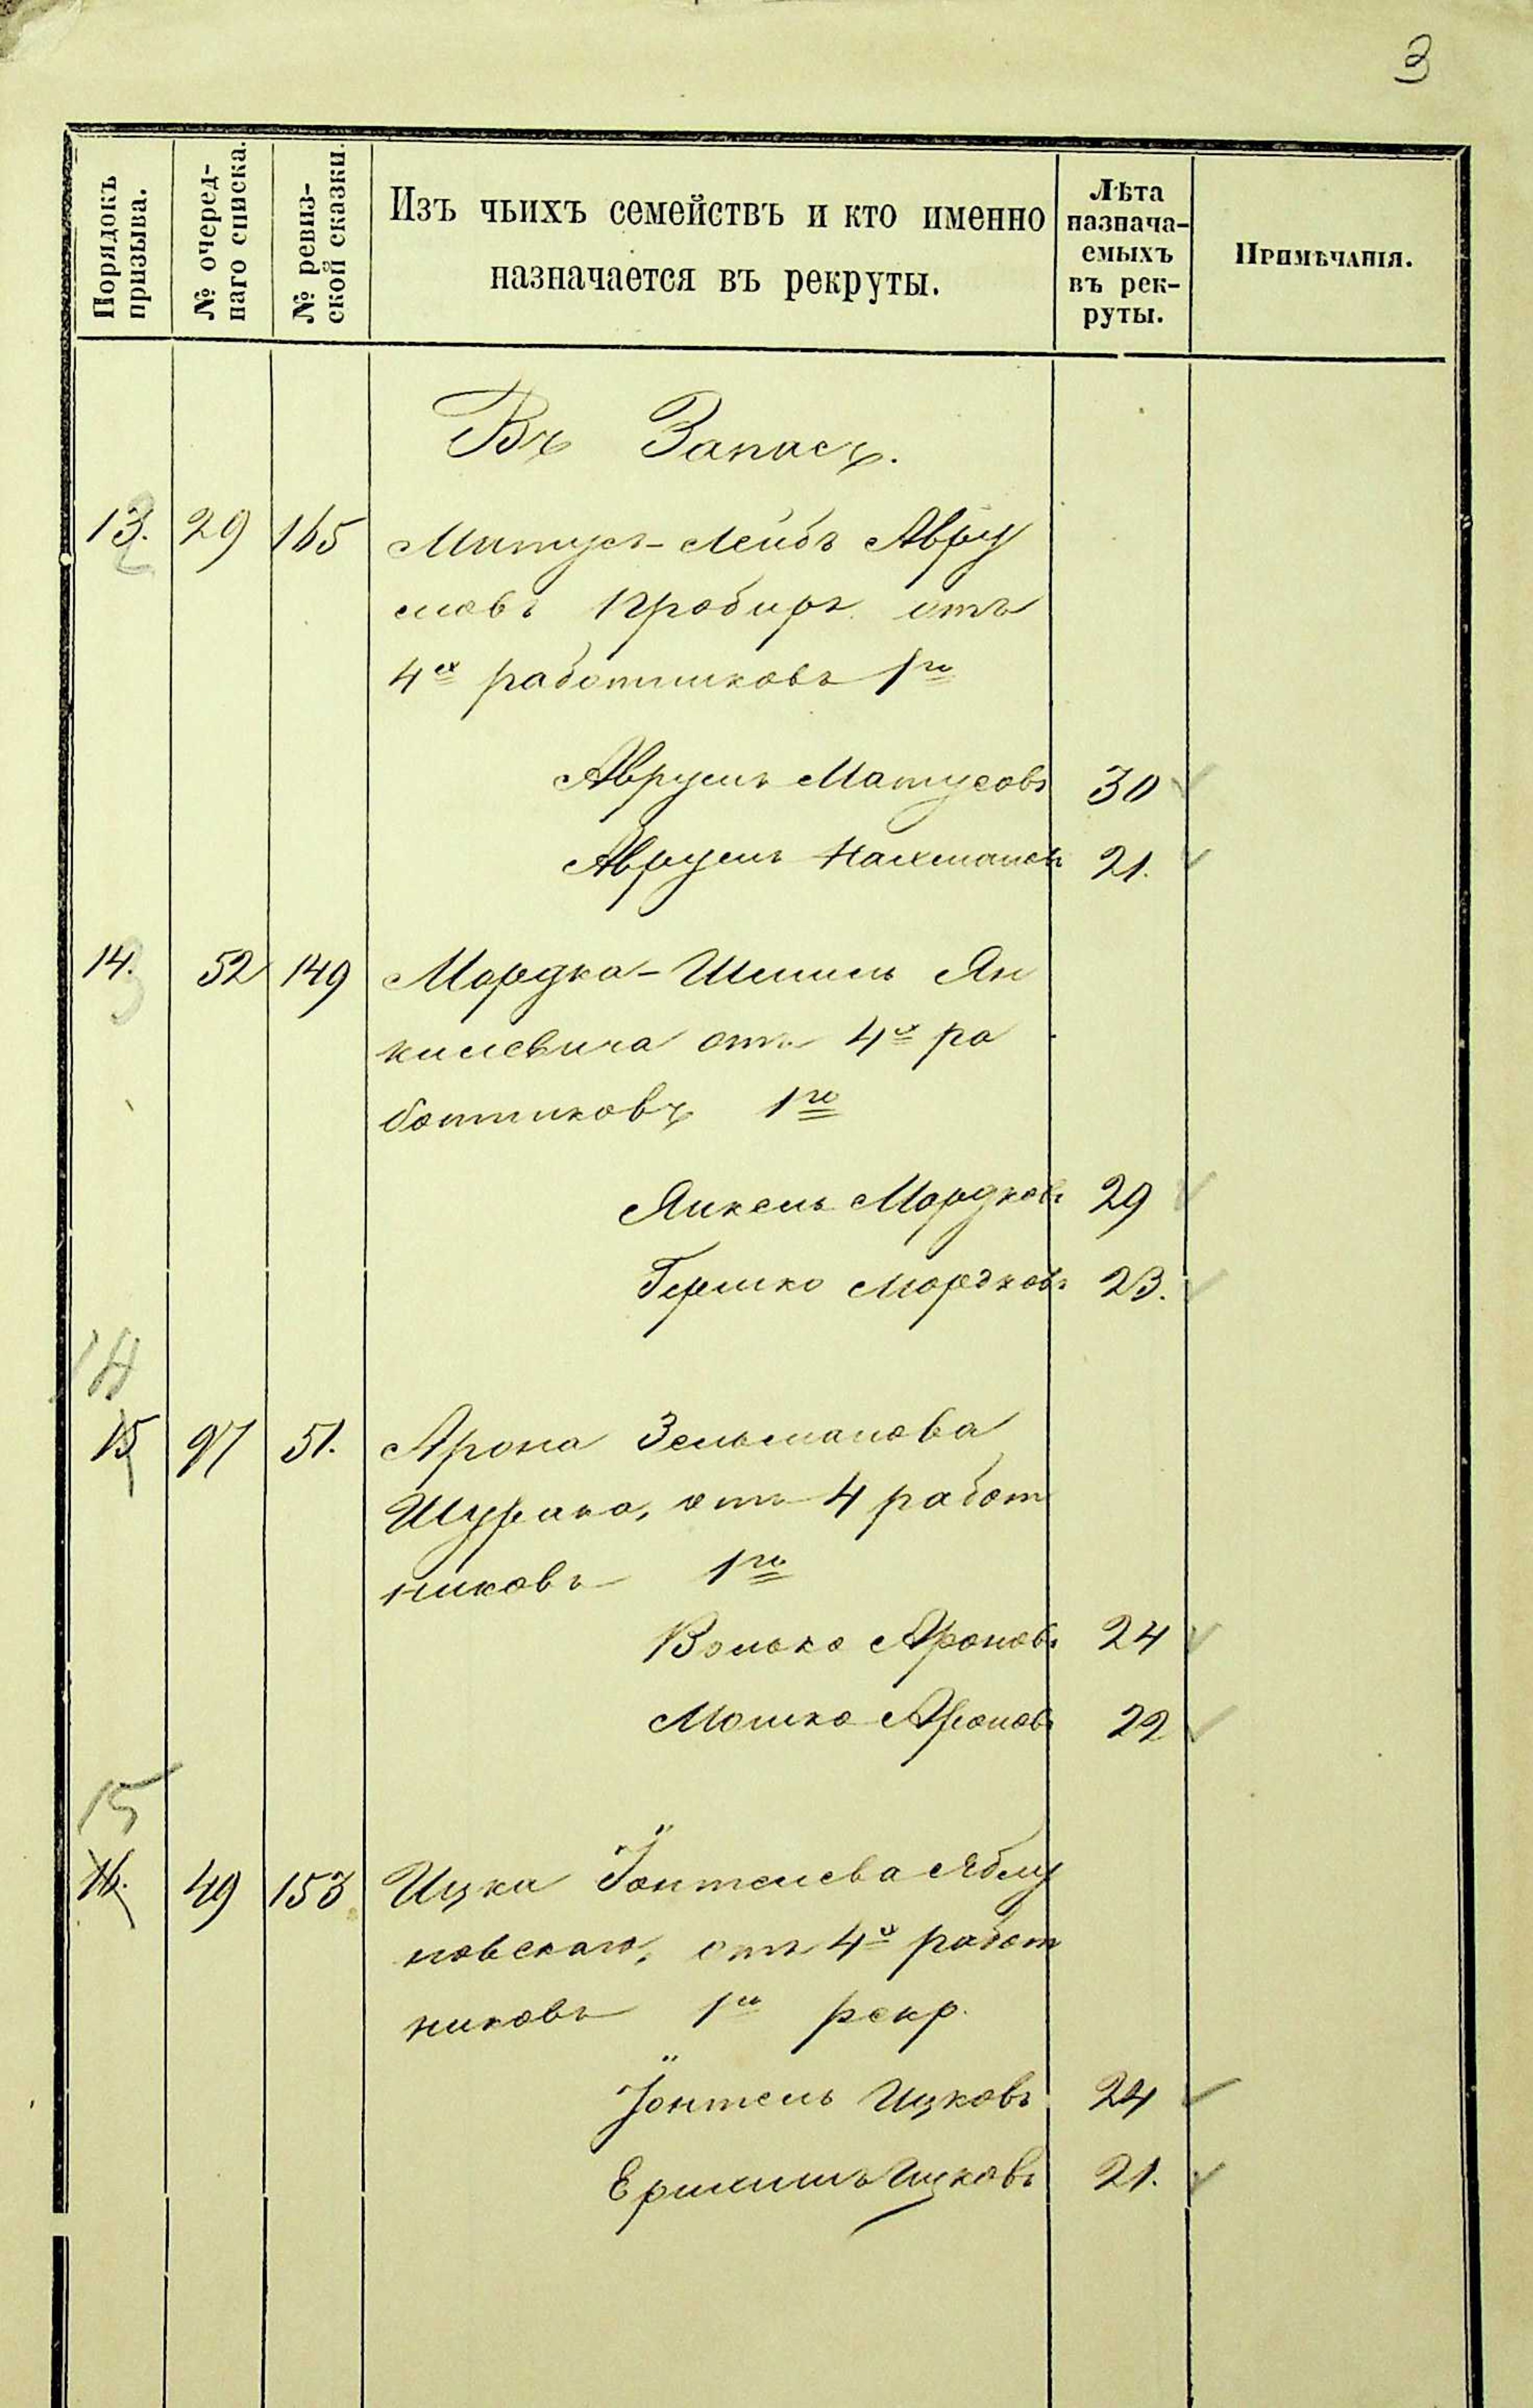 3
Порядокъ
призыва.
№ очеред-
наго списка.
№ ревиз-
ской сказки.
Изъ чьихъ семействъ и кто именно
назначается въ рекруты.
Лѣта
назнача-
емыхъ
въ рек-
руты.
Примѣчанія.
Въ Запасъ.
13. 29 165 Матусъ-Лейбъ Авру
мовъ Пробиръ отъ
4хъ работниковъ 1го
Аврумъ Матусовъ 30
Аврумъ Нахмановъ 21.
14. 52 149 Мордка-Шмиль Ян
килевича отъ 4хъ ра
ботниковъ 1го
Янкель Мордковъ 29
Гершко Мордковъ 23.
14
15 97 51. Арона Зельманова
отъ 4 работ
никовъ 1го
Волько Ароновъ 24
Мошко Ароновъ 22
15
16. 49 153 Ицка Іонтелева Яблу
новскаго, отъ 4хъ работ
никовъ 1го рекр.
Іонтель Ицковъ 24
Ицковъ 21.